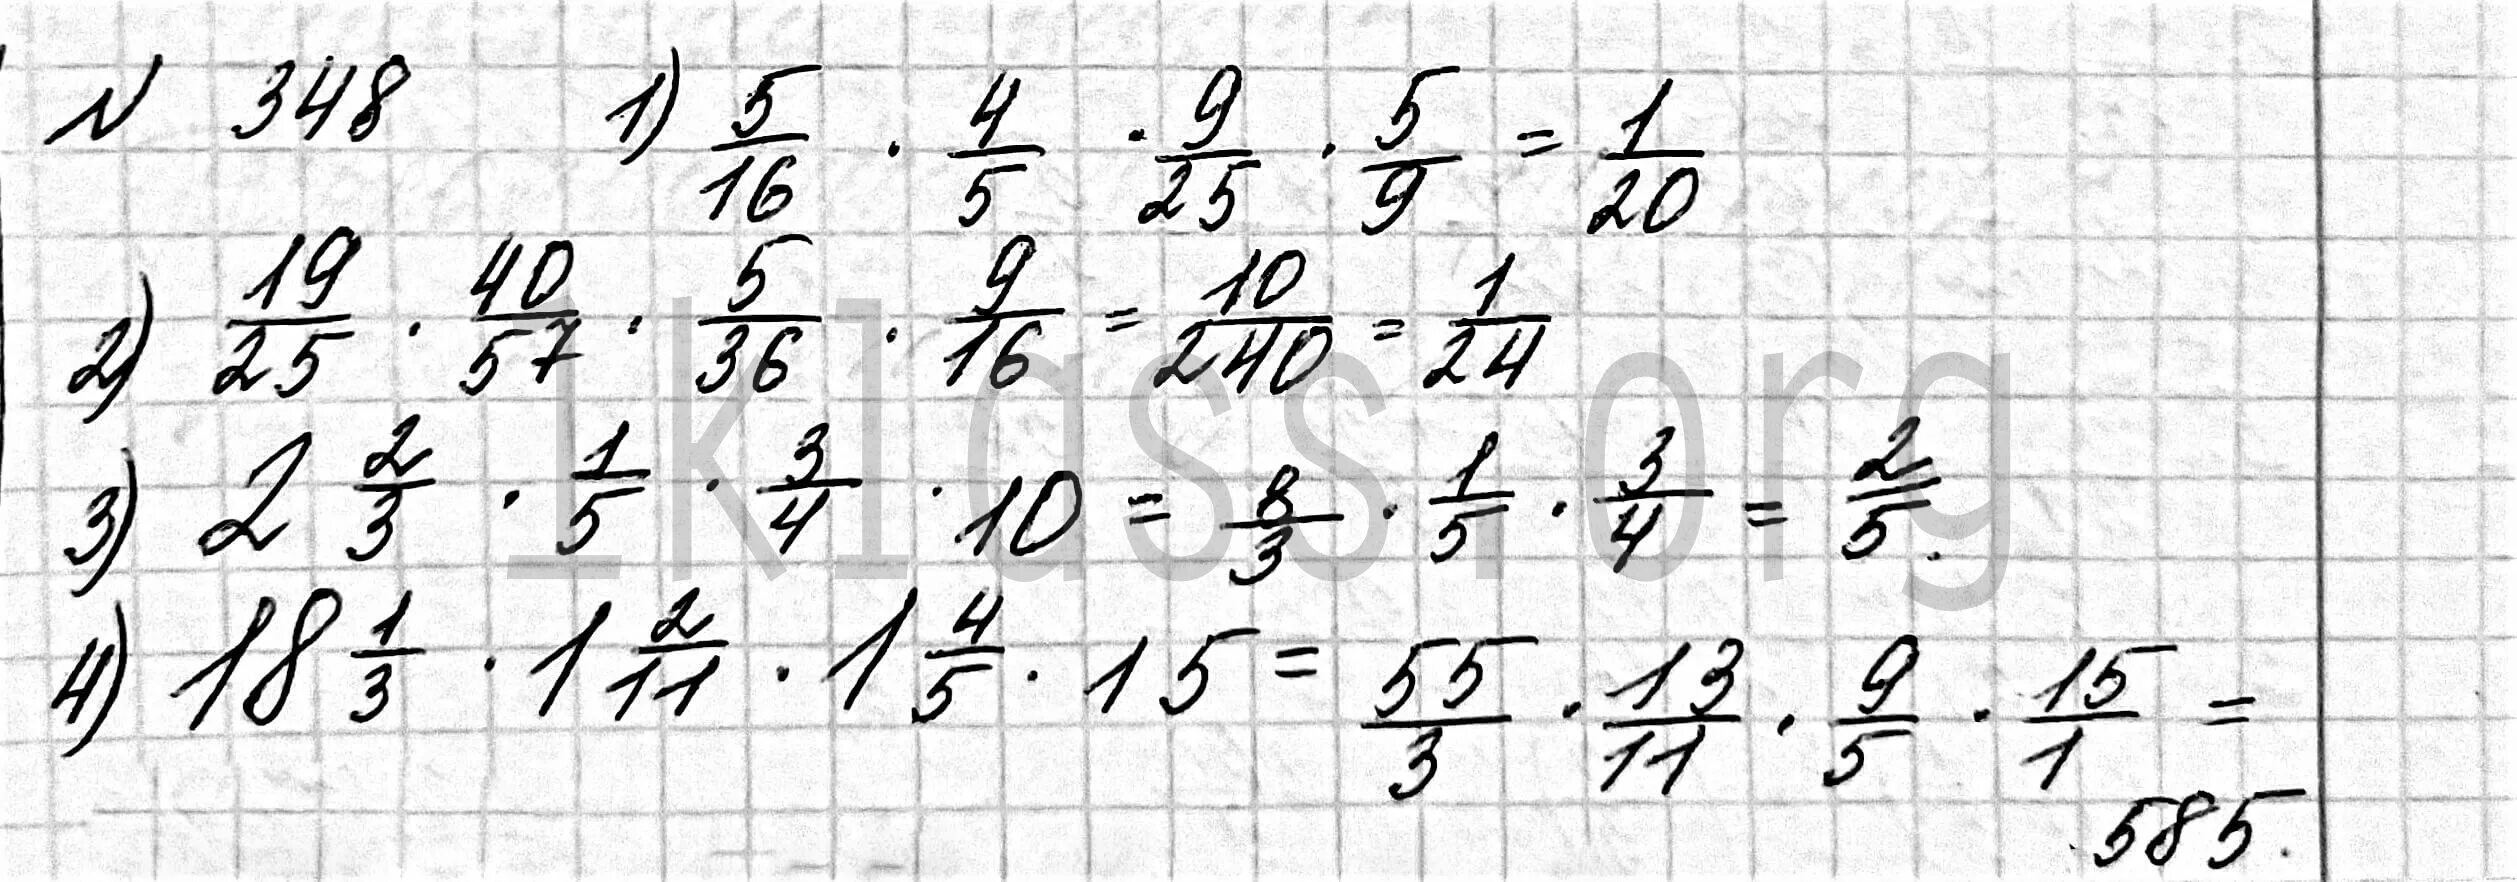 N 348 1) 5/16 · 4/5 · 9/25 · 5/9 = 1/20
2) 19/25 · 40/57 · 5/36 · 9/16 = 10/240 = 1/24
3) 2 2/3 · 1/5 · 3/4 · 10 = 8/3 · 1/5 · 3/4 = 2/5.
4) 18 1/3 · 1 2/11 · 1 4/5 · 15 = 55/3 · 13/11 · 9/5 · 15/1 =
585.
1klass.org